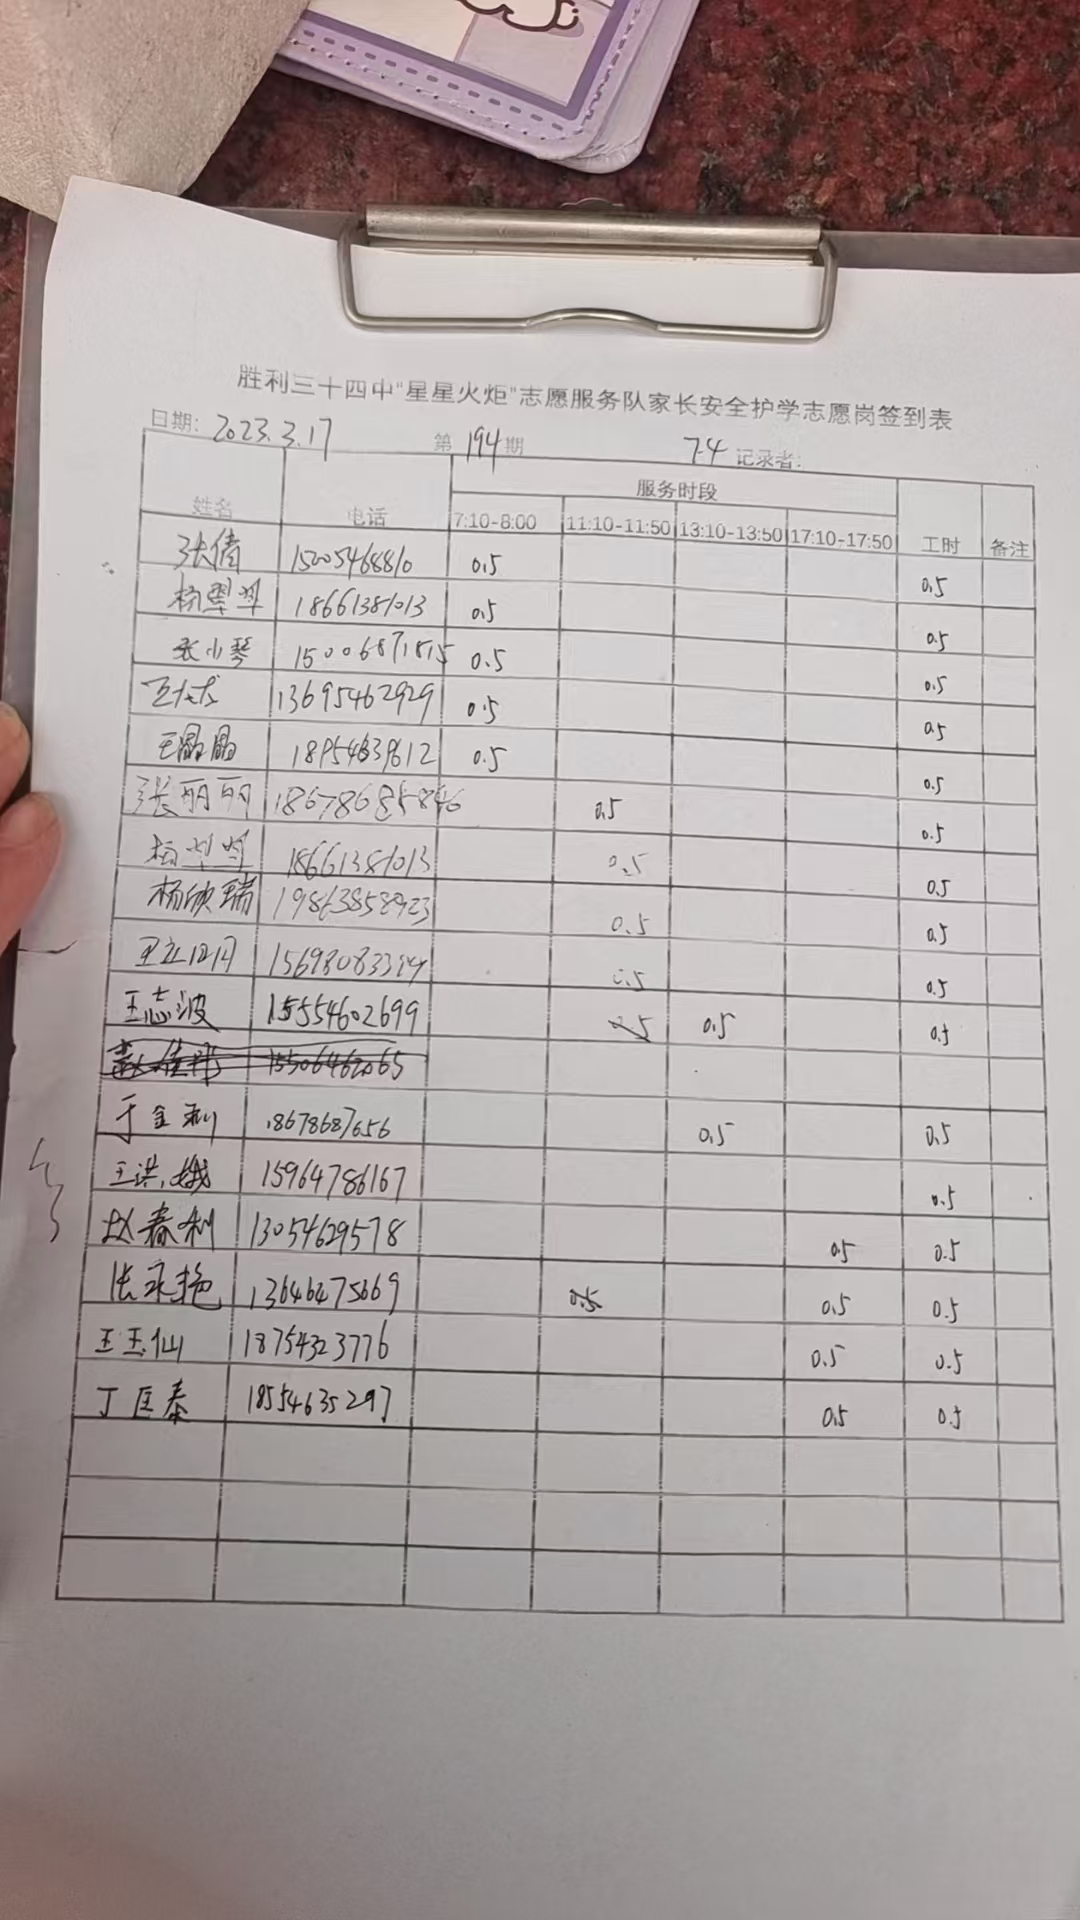 胜利三十四中"星星火炬"志愿服务队家长安全护学志愿岗签到表
日期: 2023.3.17 第194期 7.4 记录者:
姓名 电话 服务时段 工时 备注
7:10-8:00 11:10-11:50 13:10-13:50 17:10-17:50
张倩 15005468810 0.5 0.5
18661381013 0.5 0.5
张小琴 15006871815 0.5 0.5
13695462929 0.5 0.5
王晶晶 18954639612 0.5 0.5
张丽丽 18678685846 0.5 0.5
18661381013 0.5 0.5
杨欣瑞 19863858923 0.5 0.5
0.5 0.5
王志波 15554602699 0.5 0.5 0.5
15506462065
于金利 18678687656 0.5 0.5
王洪娥 15964786167 0.5
赵春利 13054629578 0.5 0.5
张永艳 13646475669 0.5 0.5 0.5
王玉仙 18754323776 0.5 0.5
丁匡泰 18554635297 0.5 0.5